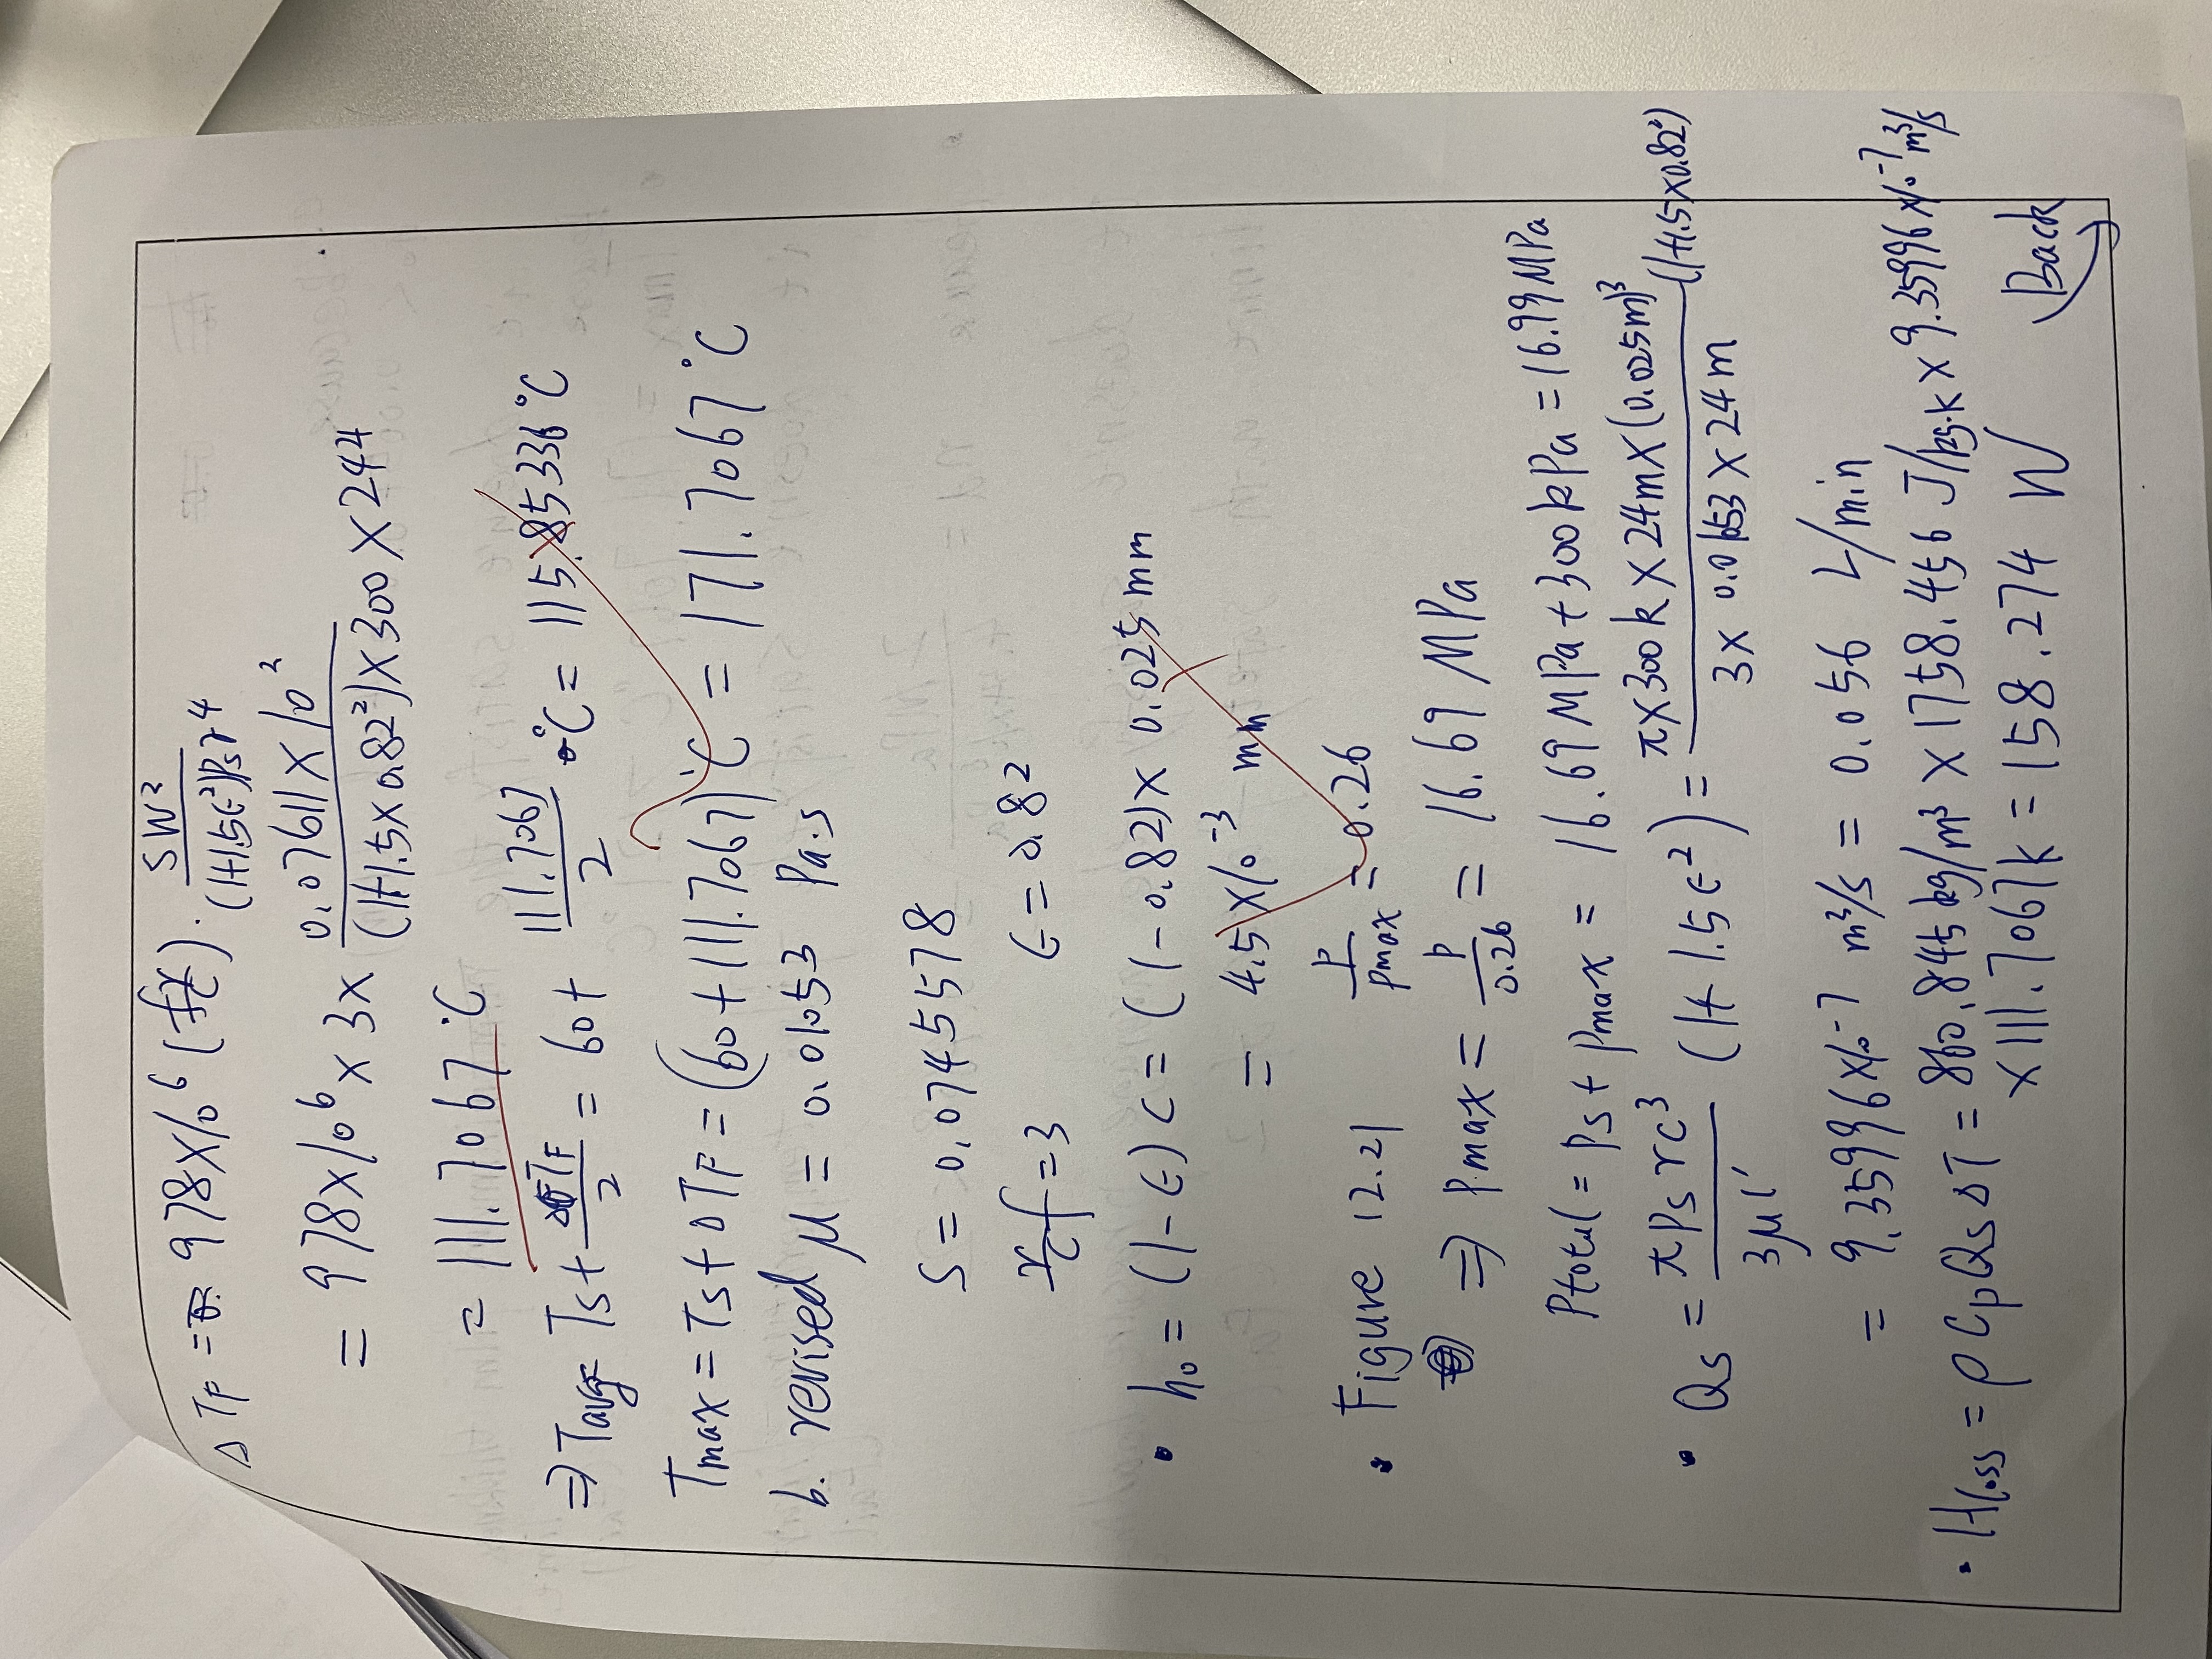 ΔT_F = 978×10⁶ (fr/c) · SW² / (1+1.5ε²)P_s r⁴
= 978×10⁶ × 3 × 0.07611×10² / (1+1.5×0.82²)×300×24⁴
= 111.7067 °C
⇒ Tavg = Ts + ΔT_F / 2 = 60 + 111.7067 / 2 °C = 115.85336 °C
Tmax = Ts + ΔT_F = (60+111.7067) °C = 171.7067 °C
b. revised μ = 0.01053 Pa.s
S = 0.0745578
r/c f = 3 ε = 0.82
• h₀ = (1-ε) c = (1-0.82)× 0.025 mm
= 4.5×10⁻³ mm
• Figure 12.21 P/Pmax = 0.26
⇒ Pmax = P/0.26 = 16.69 MPa
Ptotal = Ps + Pmax = 16.69 MPa + 300 kPa = 16.99 MPa
• Qs = πPs rc³ / 3μl' (1+1.5ε²) = π×300k×24m×(0.025m)³ / 3×0.01053×24m (1+1.5×0.82²)
= 9.35996×10⁻⁷ m³/s = 0.056 L/min
• Hloss = ρ Cp Qs ΔT = 860.845 kg/m³ × 1758.456 J/kg·K × 9.35996×10⁻⁷ m³/s
×111.7067k = 158.274 W
Back